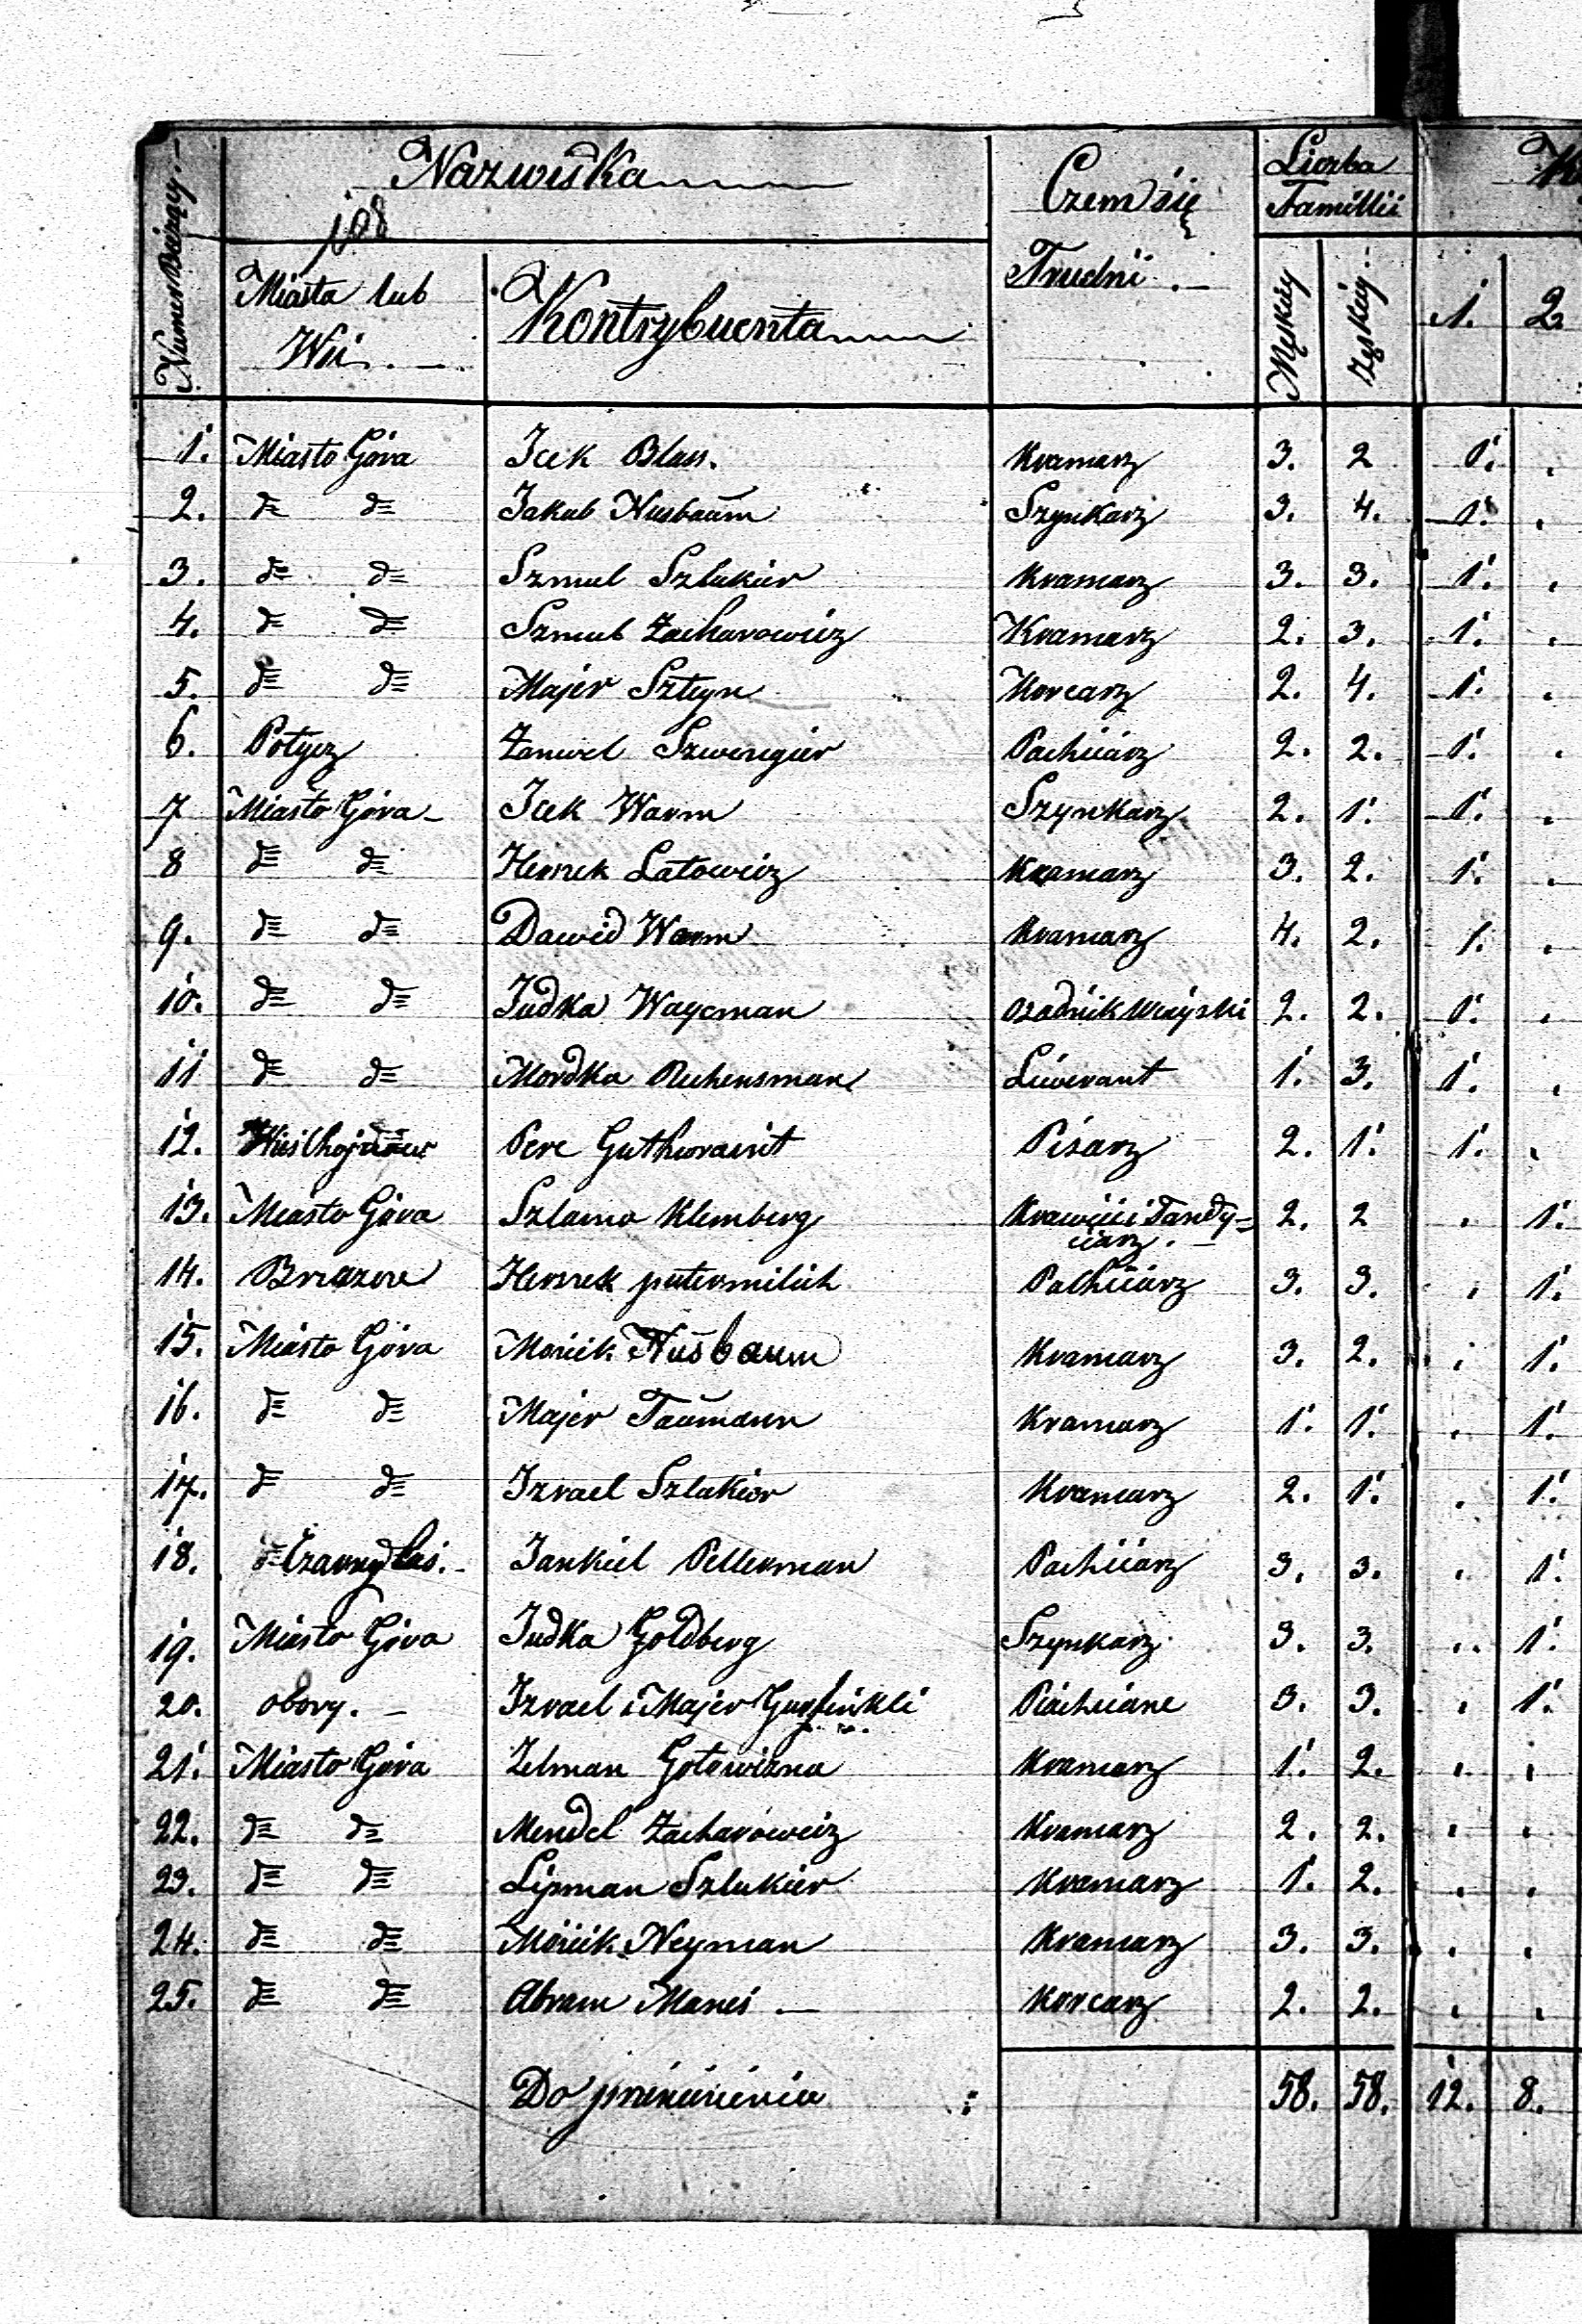 Numer Bieżący.
Nazwiska
Czem się
Trudni.
Liczba
Familii
108
Miasta lub
Wsi
Kontrybuenta
Męskiey
Żęskiey
1. 2.
1. Miasto Góra Icek Blass. Kramarz 3. 2 1. .
2. d= d= Jakub Nusbaum Szynkarz 3. 4. 1. .
3. d= d= Szmul Szlukier Kramarz 3. 3. 1. .
4. d= d= Szmul Zacharowicz Kramarz 2. 3. 1. .
5. d= d= Majer Szteyn Korcarz 2. 4. 1. .
6. Potycz Zamwel Szwengier Pachciarz 2. 2. 1. .
7 Miasto Góra Icek Warm Szynkarz 2. 1. 1. .
8 d= d= Herszek Latowicz Kramarz 3. 2. 1. .
9. d= d= Dawid Warm Kramarz 4. 2. 1. .
10. d= d= Judka Waycman Osadnik Wieyski 2. 2. 1. .
11 d= d= Mordka Rechensman Liwerant 1. 3. 1. .
12. Wieś Pere Pisarz 2. 1. 1. .
13. Miasto Góra Szlama Klemberg Krawiec i Tandy=
ciarz. 2. 2 . 1.
14. Brzezine Herszek putermilich Pachciarz 3. 3. . 1.
15. Miasto Góra Mośiek Nusbaum Kramarz 3. 2. . 1.
16. d= d= Majer Taumann Kramarz 1. 1. . 1.
17. d= d= Izrael Szlukier Kramarz 2. 1. . 1.
18. Czarny Las. Jankiel Pellerman Pachciarz 3. 3. . 1.
19. Miasto Góra Judka Goldberg Szynkarz 3. 3. . 1.
20. obory. Izrael i Majer Gurfinkli Pachciarze 3. 3. . 1.
21. Miasto Góra Zelman Gotowizna Kramarz 1. 2. . .
22. d= d= Mendel Zacharowicz Kramarz 2. 2. . .
23. d= d= Lipman Szlukier Kramarz 1. 2. . .
24. d= d= Mośiek Neyman Kramarz 3. 3. . .
25. d= d= Abram Maneś Korcarz 2. 2. . .
Do przenieśienia : 58. 58. 12. 8.